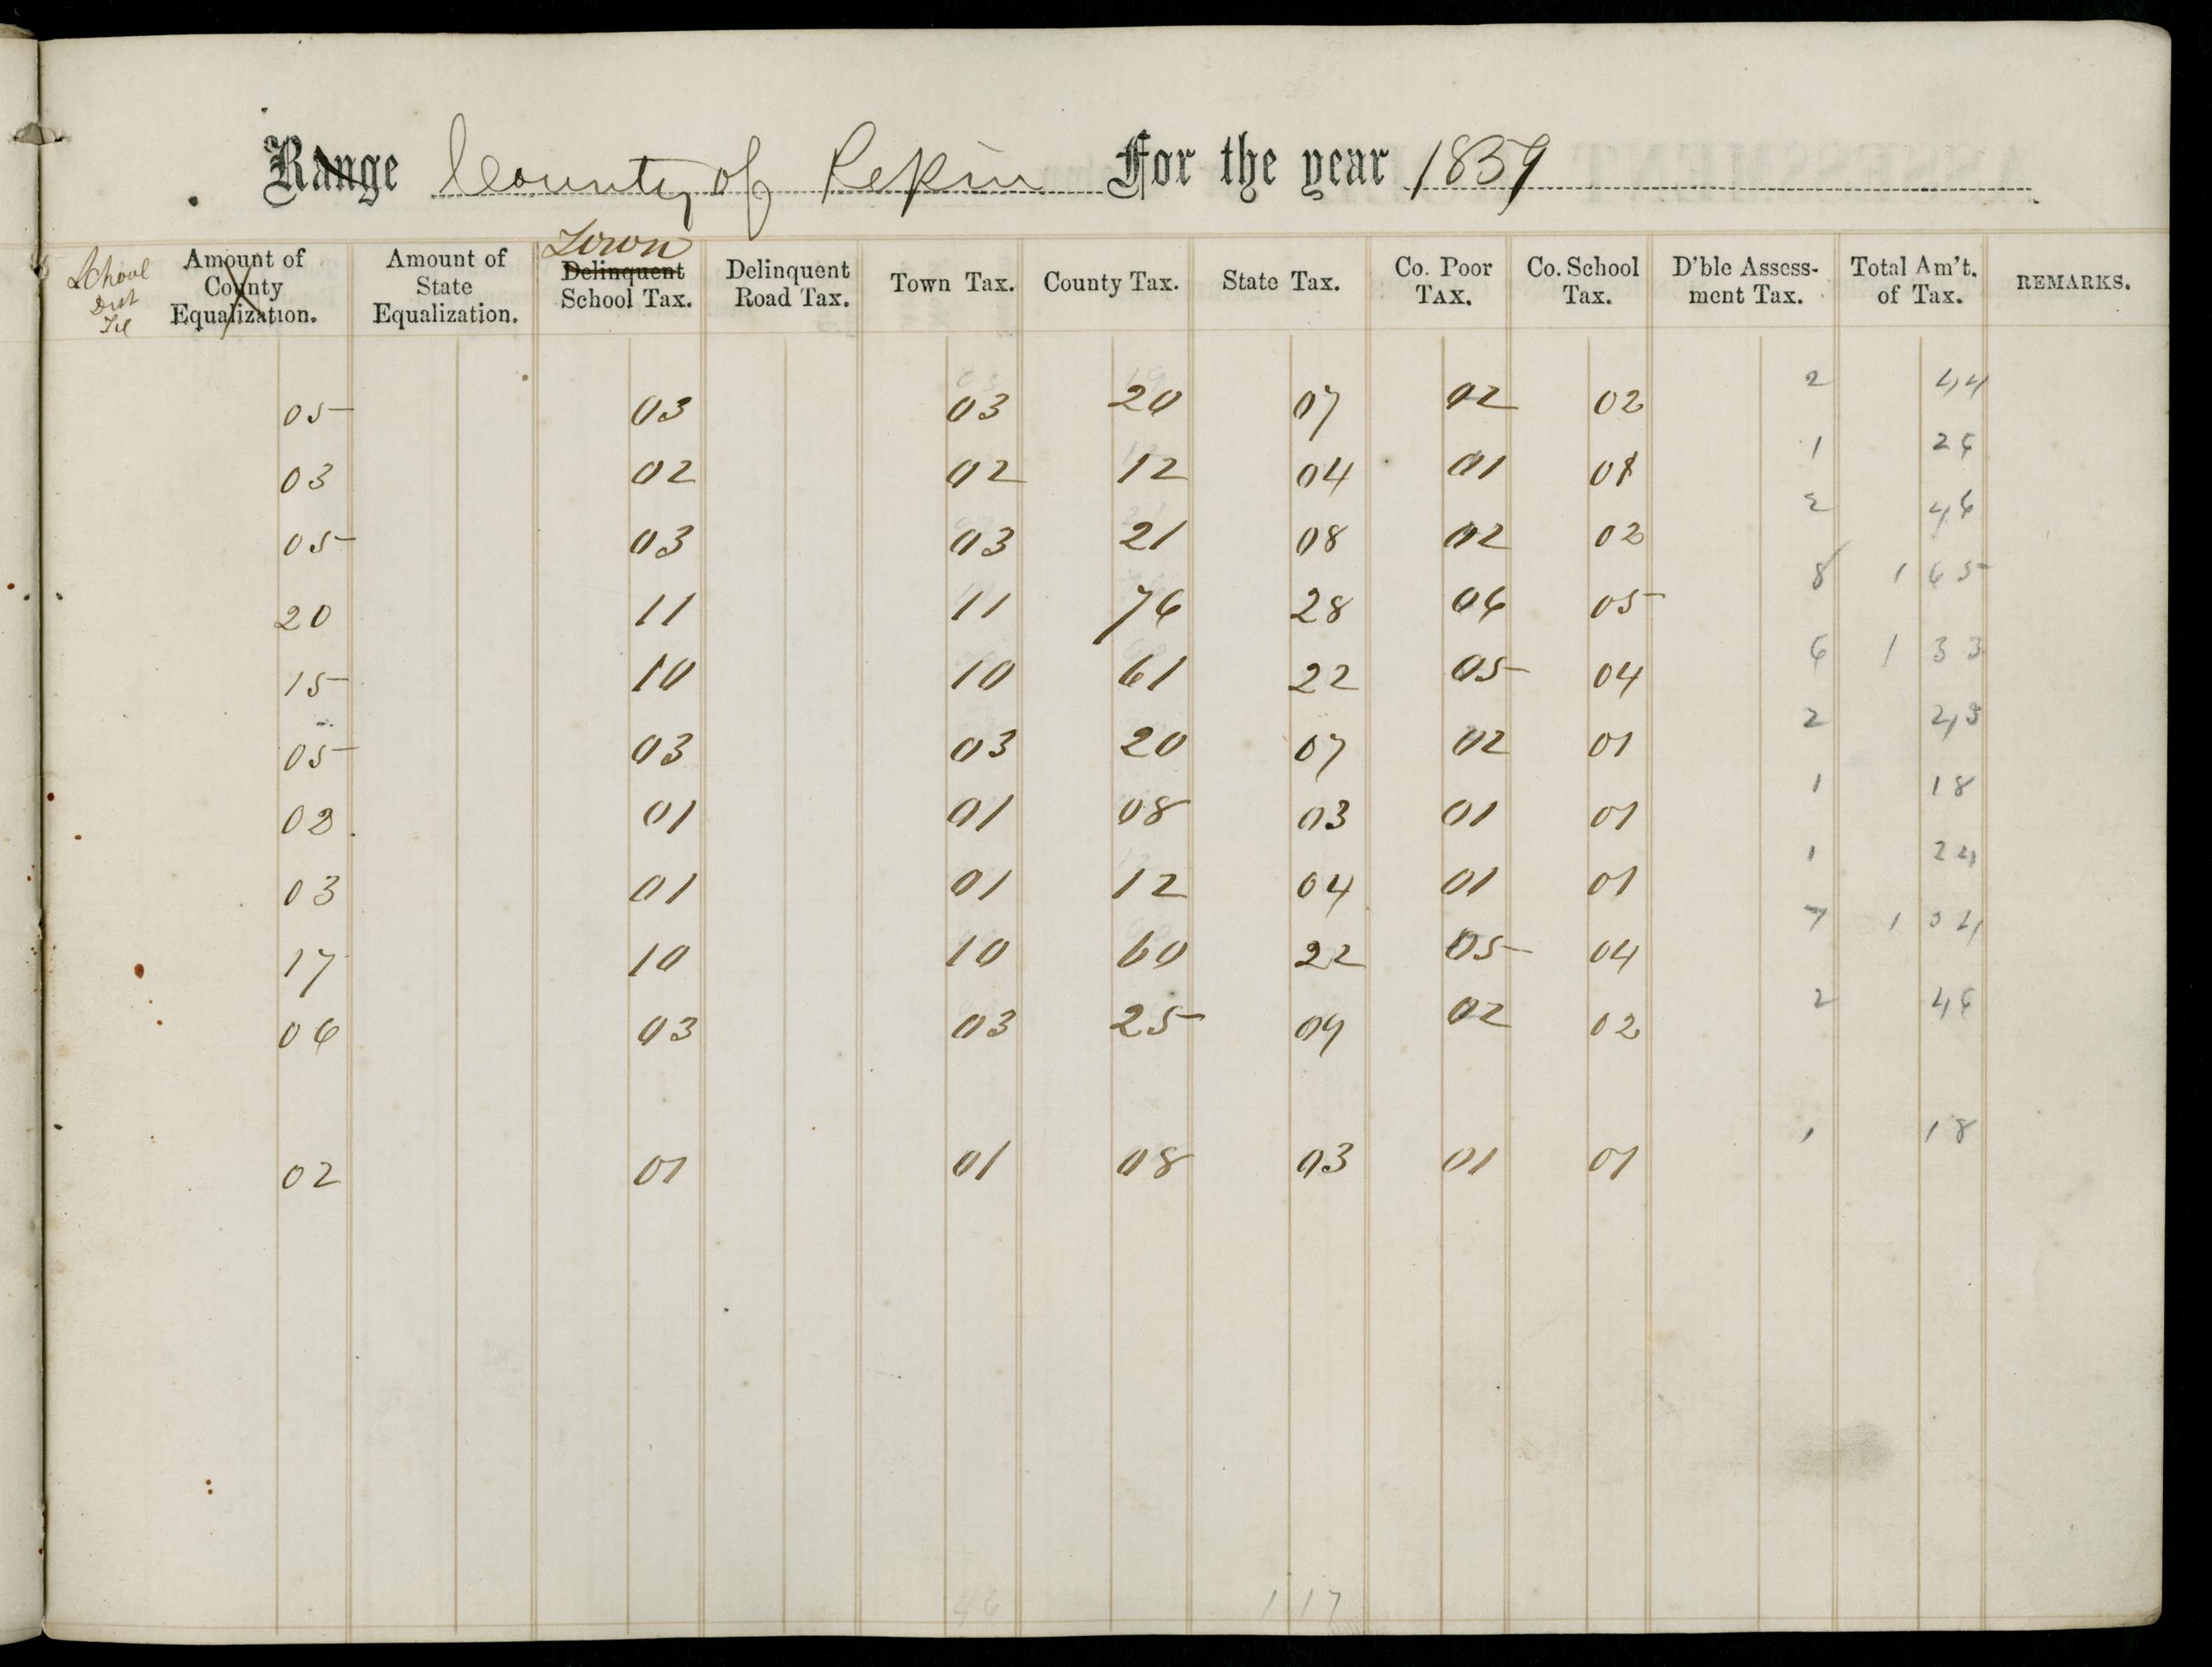 Range County of Pepin For the year 1859
School Dist Amount of County Equalization. Amount of State Equalization. Town Delinquent School Tax. Delinquent Road Tax. Town Tax. County Tax. State Tax. Co. Poor Tax. Co. School Tax. D'ble Assessment Tax. Total Am't. of Tax. REMARKS.
05 03 03 20 07 02 02 2 44
03 02 02 12 04 01 01 1 26
05 03 03 21 08 02 02 2 46
20 11 11 76 28 06 05 8 1 65
15 10 10 61 22 05 04 6 1 33
05 03 03 20 07 02 01 2 43
02 01 01 08 03 01 01 1 18
03 01 01 12 04 01 01 1 24
17 10 10 60 22 05 04 7 1 34
06 03 03 25 09 02 02 2 46
02 01 01 08 03 01 01 1 18
46 1 17